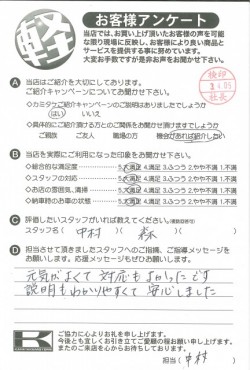 軽
お客様アンケート
当店では、お買い上げ頂いたお客様の声を可能
な限り現場に反映し、お客様により良い商品と
サービスを提供する事に努めています。
大変お手数ですが是非お声をお聞かせ下さい。
検印
社長
A 当店はご紹介を大切にしております。
ご紹介キャンペーンについてお聞かせ下さい。
◇カミタケご紹介キャンペーンのご説明はありましたでしょうか
はい いいえ
◇具体的にご紹介頂ける方とのご関係をお聞かせ頂けますでしょうか
ご親族 ご友人 職場の方 機会があれば紹介したい
B 当店を実際にご利用になった印象をお聞かせ下さい。
◇総合的な満足度 5.大満足 4.満足 3.ふつう 2.やや不満 1.不満
◇スタッフの対応 5.大満足 4.満足 3.ふつう 2.やや不満 1.不満
◇お店の雰囲気、清掃 5.大満足 4.満足 3.ふつう 2.やや不満 1.不満
◇納車時のお車の状態 5.大満足 4.満足 3.ふつう 2.やや不満 1.不満
C 評価したいスタッフがいれば教えてください。(複数回答可)
スタッフ名( 中村 森 )
D 担当させて頂きましたスタッフへのご指摘、ご指導、メッセージを
お願いします。応援メッセージもぜひお願いします。
元気がよくて 対応もよかったです
説明もわかりやすくて 安心しました
K
ご協力に心よりお礼を申し上げます。
今後とも宜しくお引き立てご愛顧の程お願い申し上げます。
またのご来店を心からお待ちしております。
担当( 中村 )